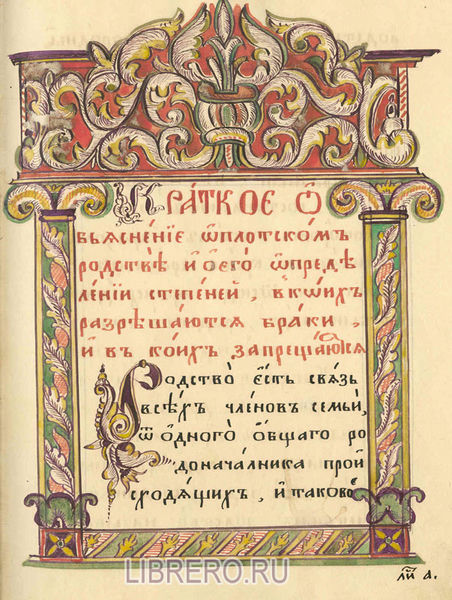 Кра́ткое ѻ
бъясне́нїе ѡ҆плотском̾ъ
родствѣ̀ и҆ ѻ҆его̀ ѡ҆предѣ
ле́нїи степене́й, в̾ко́ихъ
разрѣша́ются бра́ки,
и҆ въ ко́ихъ запреща́ются
Родство̀ є҆́сть свѧ́зь
всѣ́хъ чле́новъ семьѝ,
ѿ ѻ҆дного̀ ѻ҆́бщаго ро
донача́лника прои
сходѧ́щихъ, и҆ таково̀
ли́ а҃.
LIBRERO.RU